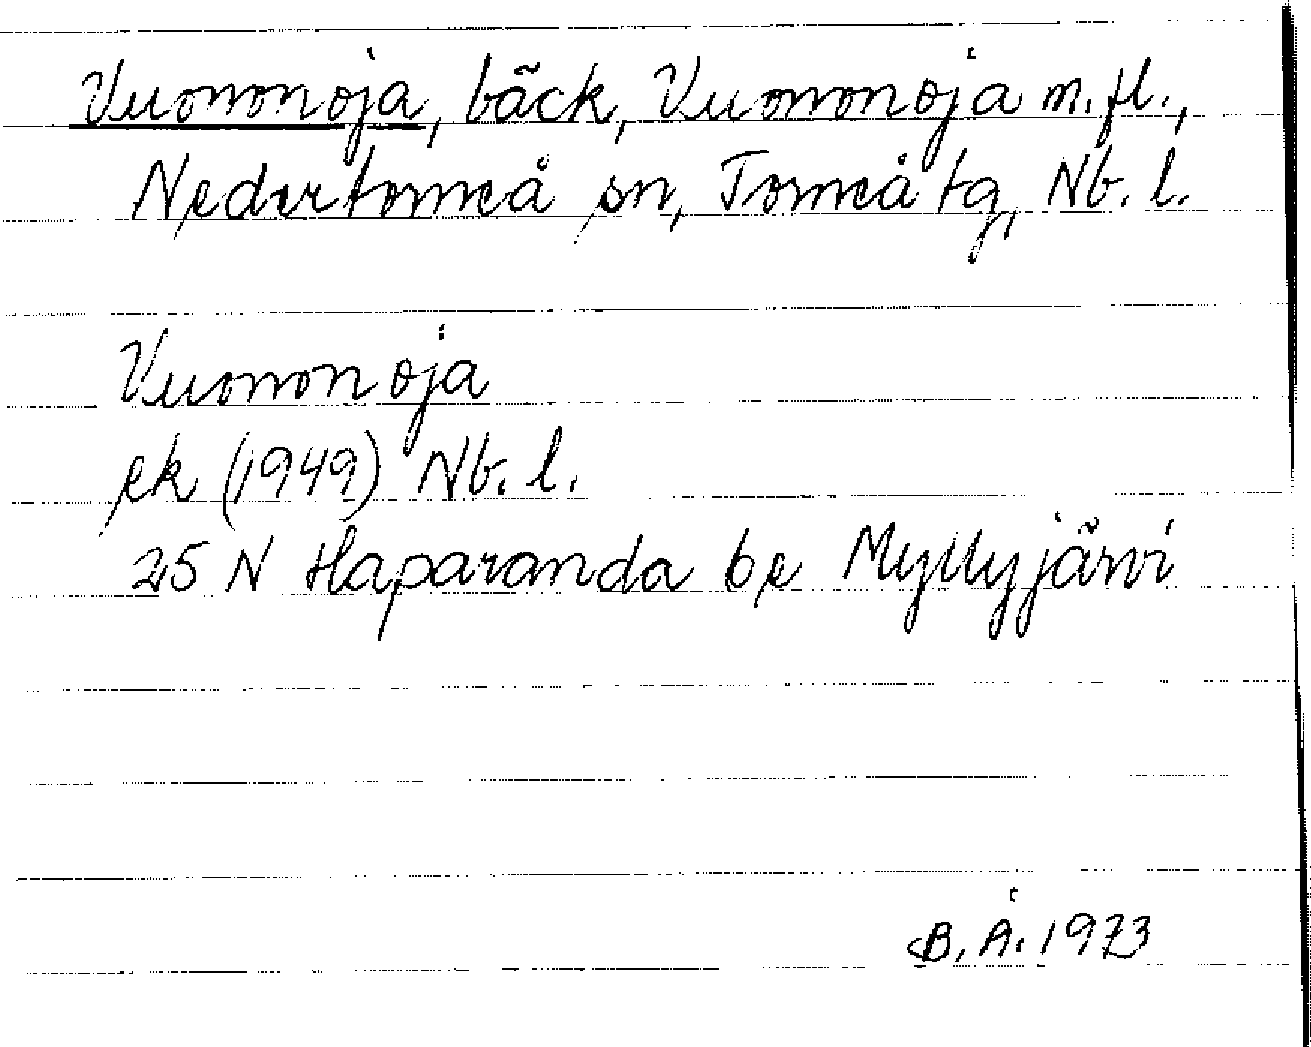 Vuononoja, bäck, Vuononoja m.fl.,
Nedertorneå sn, Torneå tg, Nb. l.
Vuononoja
ek (1949) Nb. l.
25 N Haparanda be Myllyjärvi
B. Å. 1973